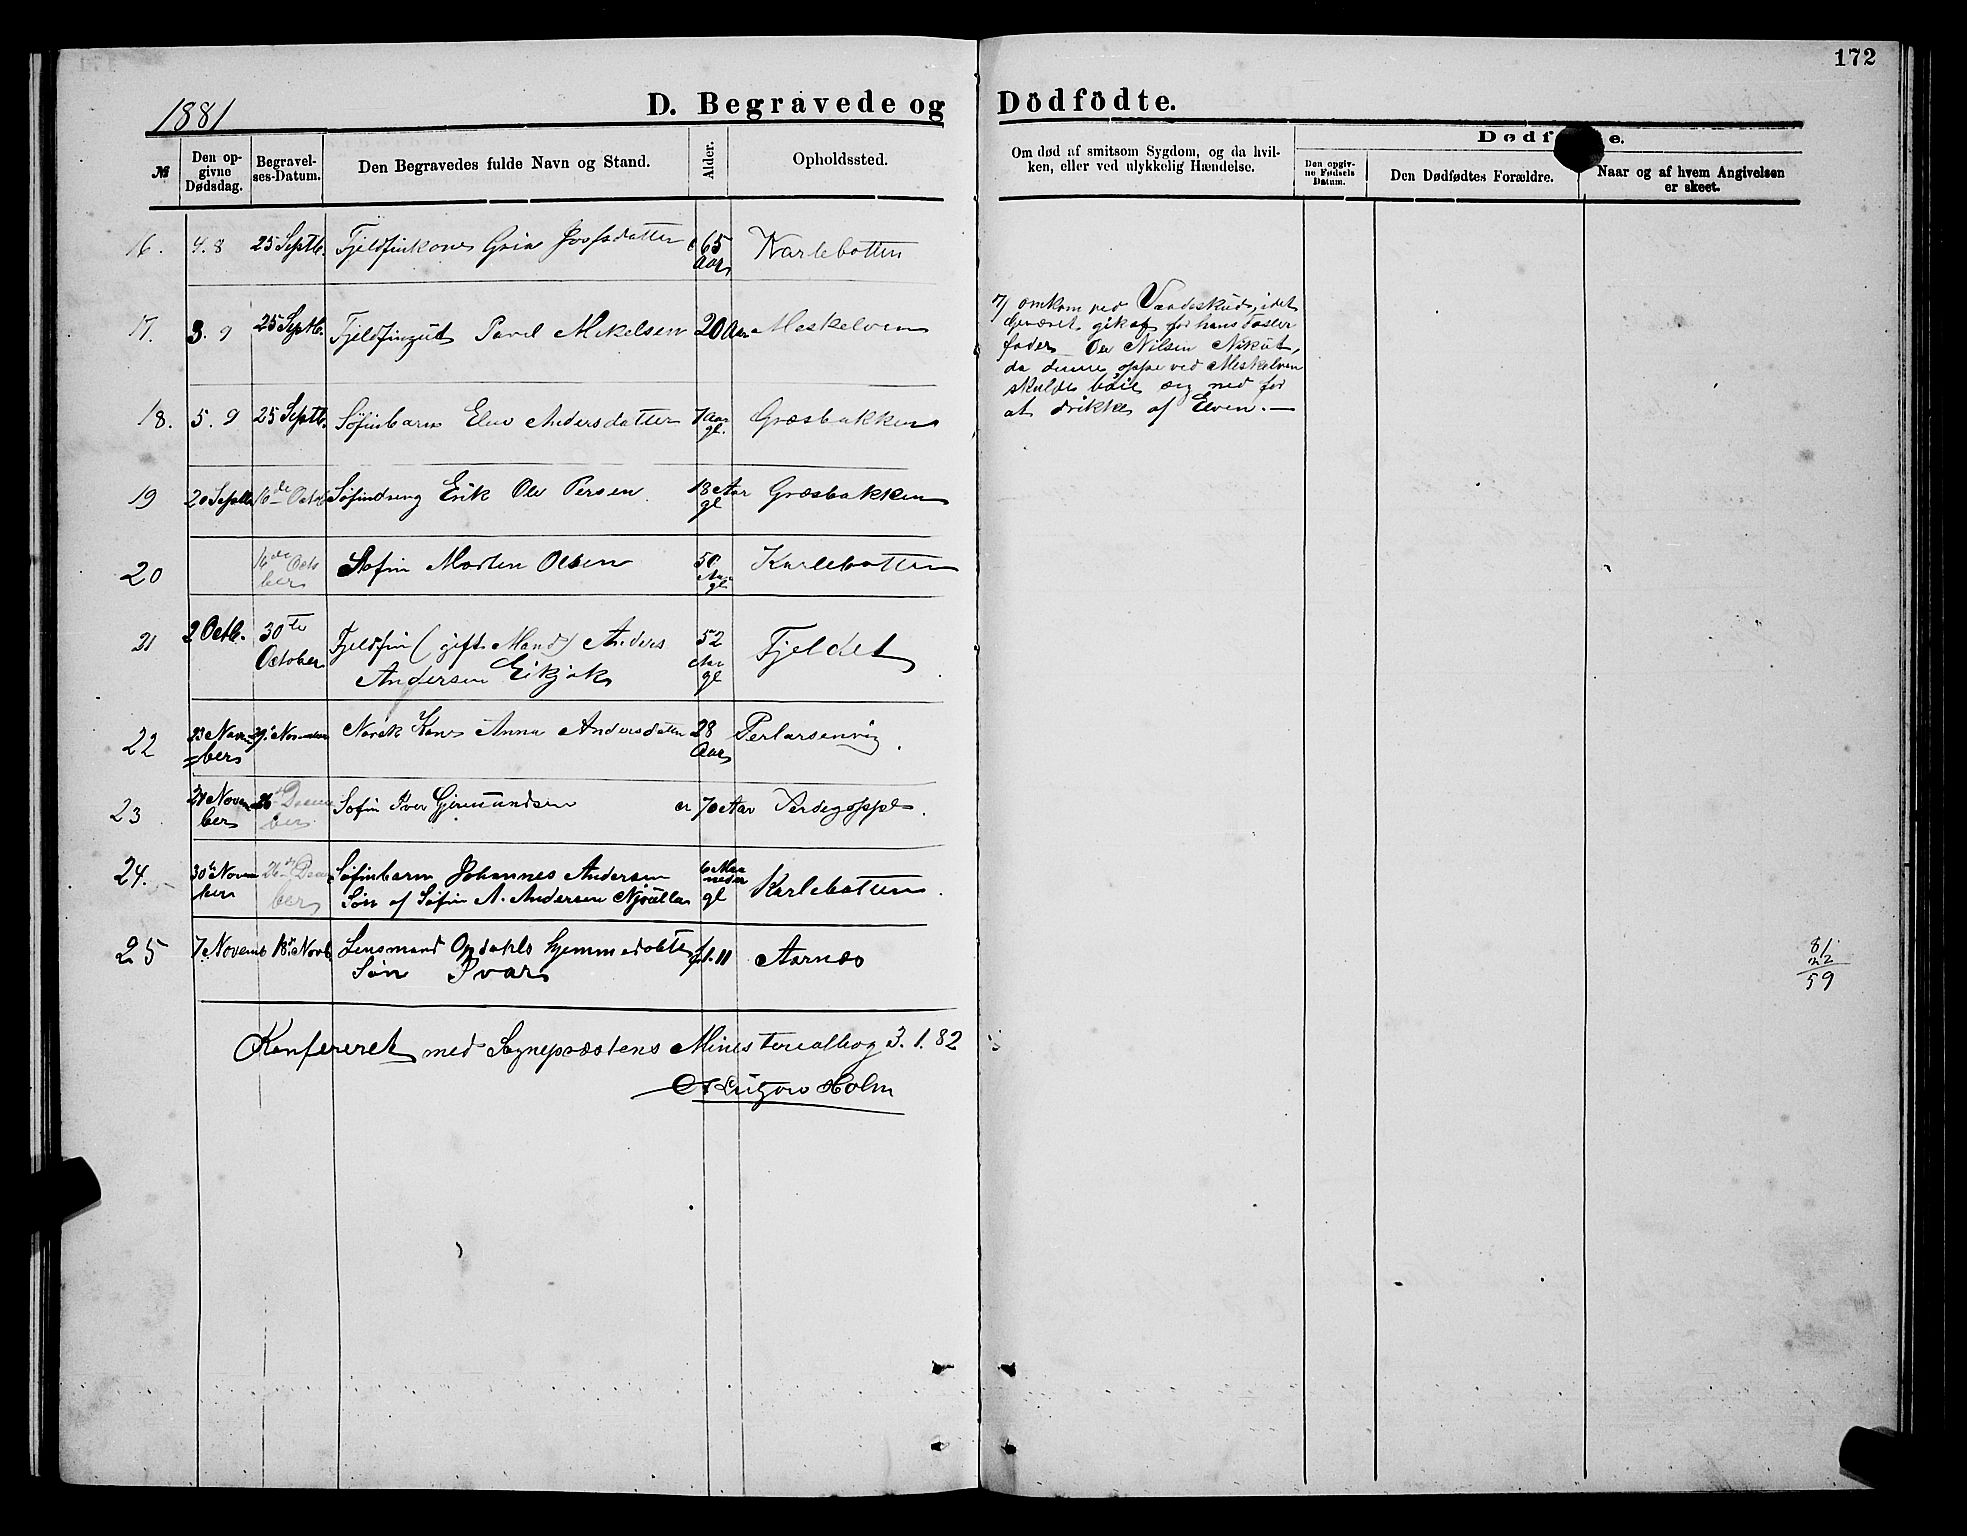 172
1881
D. Begravede og Dödfödte.
№
Den op-
givne
Dødsdag.
Begravel-
ses-Datum.
Den Begravedes fulde Navn og Stand.
Alder.
Opholdssted.
Om død af smitsom Sygdom, og da hvil-
ken, eller ved ulykkelig Hændelse.
Den opgiv-
ne Fødsels
Datum.
Den Dødfødtes Forældre.
Naar og af hvem Angivelsen
er skeet.
16. 4.8 25 Septb. Fjeldfinkone 65 Karlebotten
Aar
17. 3.9 25 Septb. Fjeldfingut Povel Mikelsen 20 Aar Meskelven
omkom ved Vaadeskud, idet
Geværet gik af for hans
fader Ole Nilsen
da denne oppe ved Meskelven
skulde bøie sig ned for
at drikke af Elven.
18. 5.9 25 Septb. Søfinbarn Elen Andersdatter 7 Aar Græsbakken
gl.
19 20 Septb 16de Octob Søfindreng Erik Ole Persen 18 Aar Græsbakken
gl
20 16de Octo Søfin Morten Olsen 50 Karlebotten
ber Aar
gl
21 2 Octb. 30te Fjeldfin (gift Mand) Anders 52 Fjeldet
October Andersen Eikjok Aar
gl
22 23 Novem Norsk Kone Anna Andersdatter 28 Perlarsenvig
bers Aar
23 Novem 26 Decem Søfin Iver Gjermundsen 70 Aar
ber ber
24. 30te Novem 26de Decem Søfinbarn Johannes Andersen 6 Maa Karlebotten
ber ber Søn af Søfin A. Andersen neder
gl
25 7. Novemb 18de Novb Lensmand Opdahls hjemmedøbte Aarnæs
Søn Ivar
81
22
59
Konfereret med Sognepræstens Ministerialbog 3.1.82
Holm